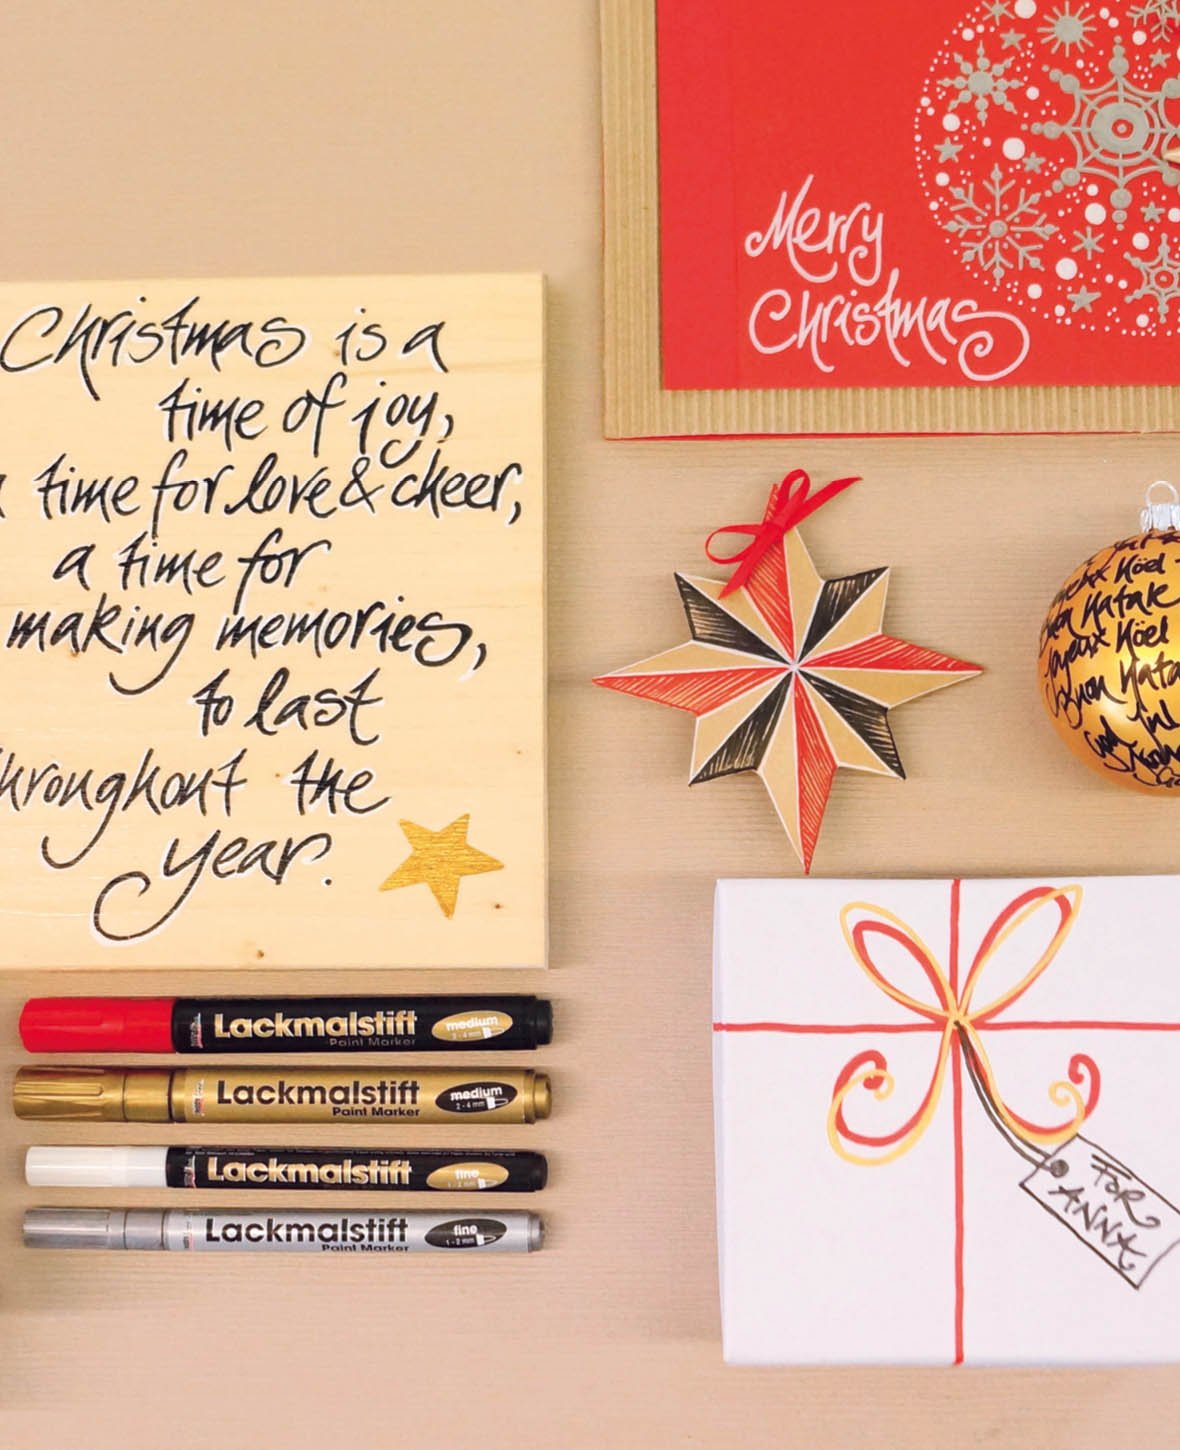 Merry
Christmas
Christmas is a
time of joy,
time for love & cheer,
a time for
making memories,
to last
throughout the
year.
Noël
Natale
Joyeux Noël
Buon Nata
FOR
ANNA
Lackmalstift
Paint Marker
medium
2-4 mm
Lackmalstift
Paint Marker
medium
2-4 mm
Lackmalstift
fine
1-2 mm
Lackmalstift
Paint Marker
fine
1-2 mm